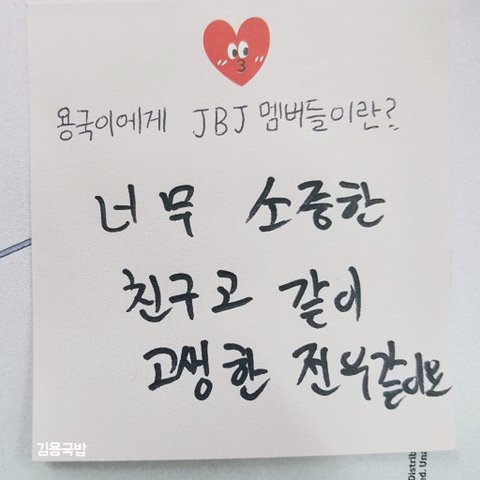 용국이에게 JBJ 멤버들이란?
너무 소중한
친구고 같이
고생한 전우같아요
김용국밥
Distrib
ed. Una